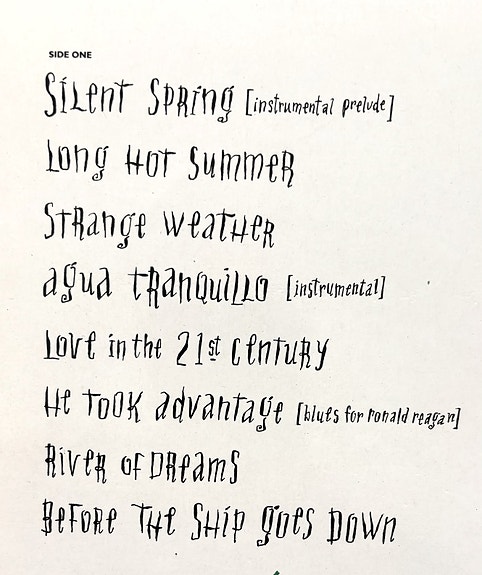 SIDE ONE
Silent Spring [instrumental prelude]
Long Hot Summer
Strange Weather
Agua Tranquillo [instrumental]
Love in the 21st Century
He Took Advantage [blues for ronald reagan]
River of Dreams
Before The Ship Goes Down